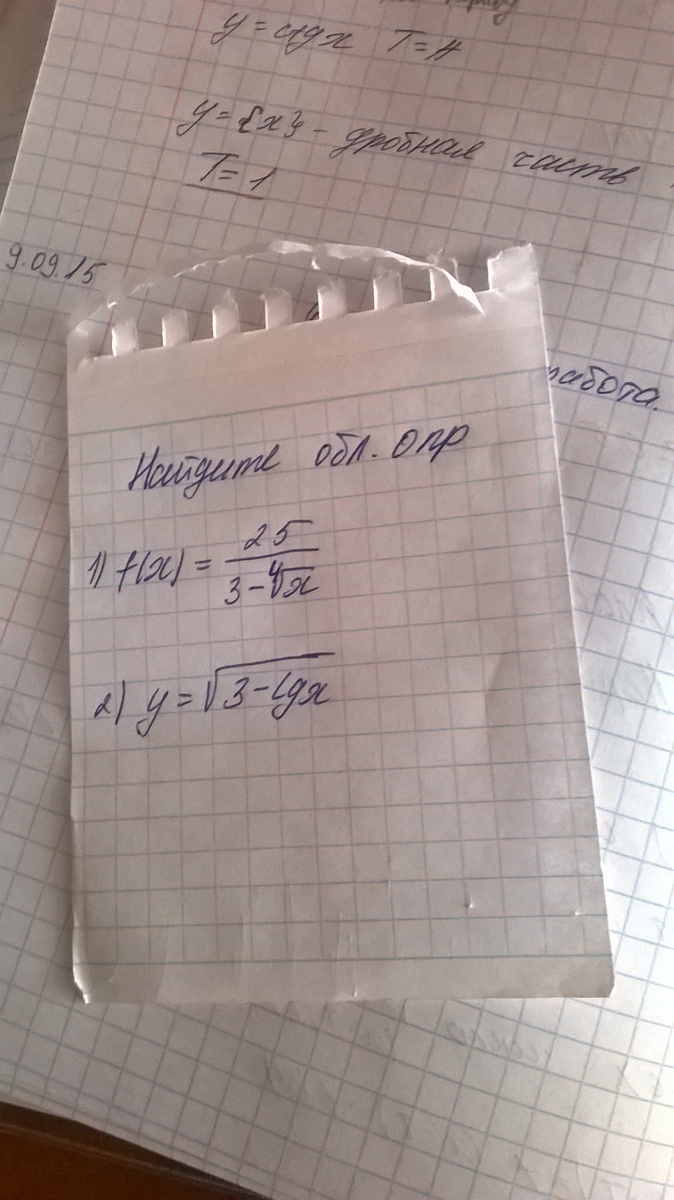 y = ctgx T = π
y = {x} - дробная часть
T = 1
9.09.15
работа.
Найдите обл. опр
1) f(x) = 25 / (3 - ∜x)
2) y = √(3 - lgx)